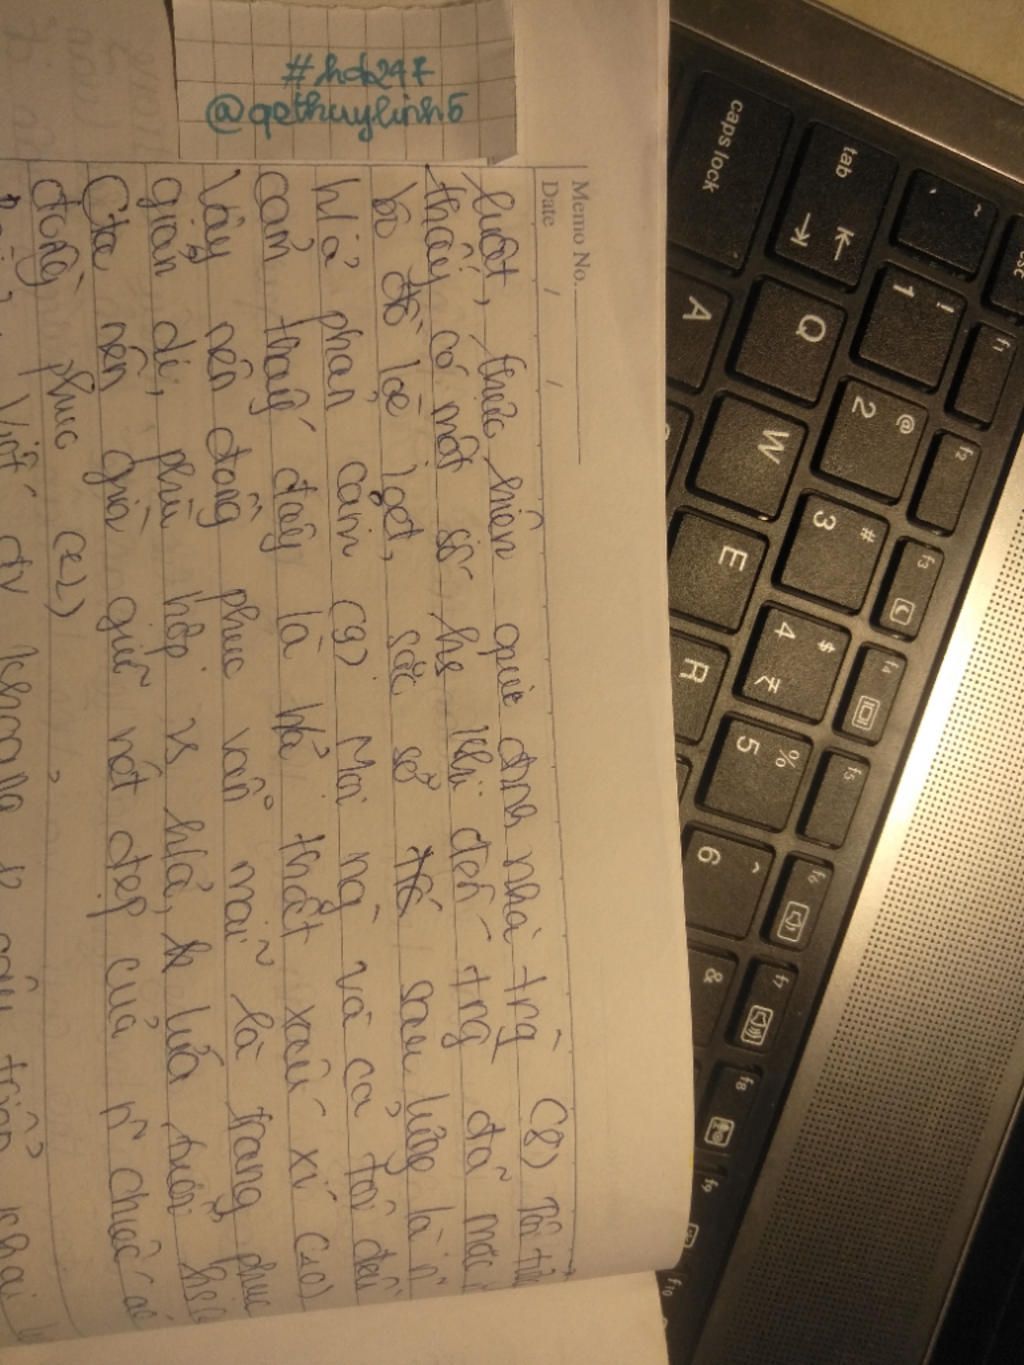 #hdc247
@qothuylinh5
Memo No.
Date / /
luật, thực hiện quy định nhà trg (8) Tôi
thấy có một số hs khi đến trg đã mặc
bộ đồ lòe loẹt, sặc sỡ sau lưng là n~
h/ả phản cảm (9) Mọi ng và cả tôi đều
cảm thấy đây là h/ả thật xấu xí (10)
Vậy nên đồng phục vẫn mãi là trang phục
giản dị, phù hợp vs h/ả, lứa tuổi
Cta nên gìn giữ nét đẹp của n~ chiếc áo
đồng phục
Viết đv khoảng
esc
~ `
! 1
@ 2
# 3
$ 4 ₹
% 5
^ 6
&
tab
Q
W
E
R
caps lock
A
f1
f2
f3
f4
f5
f6
f7
f8
f9
f10